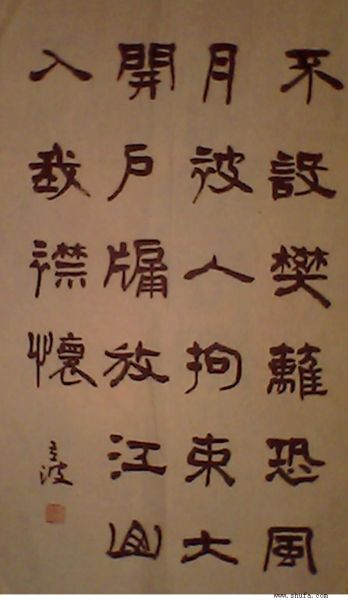 不設樊籬恐風
月被人拘束大
開戶牖放江山
入我襟懷
www.shufa.com